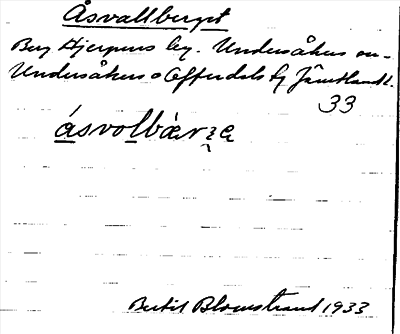 Åsvallberget
Berg Hjerpens llg. Undersåkers sn-
Undersåkers o Offerdals tg Jämtland l.
33
åsvolbærʒɐ
Bertil Blomstrand 1933